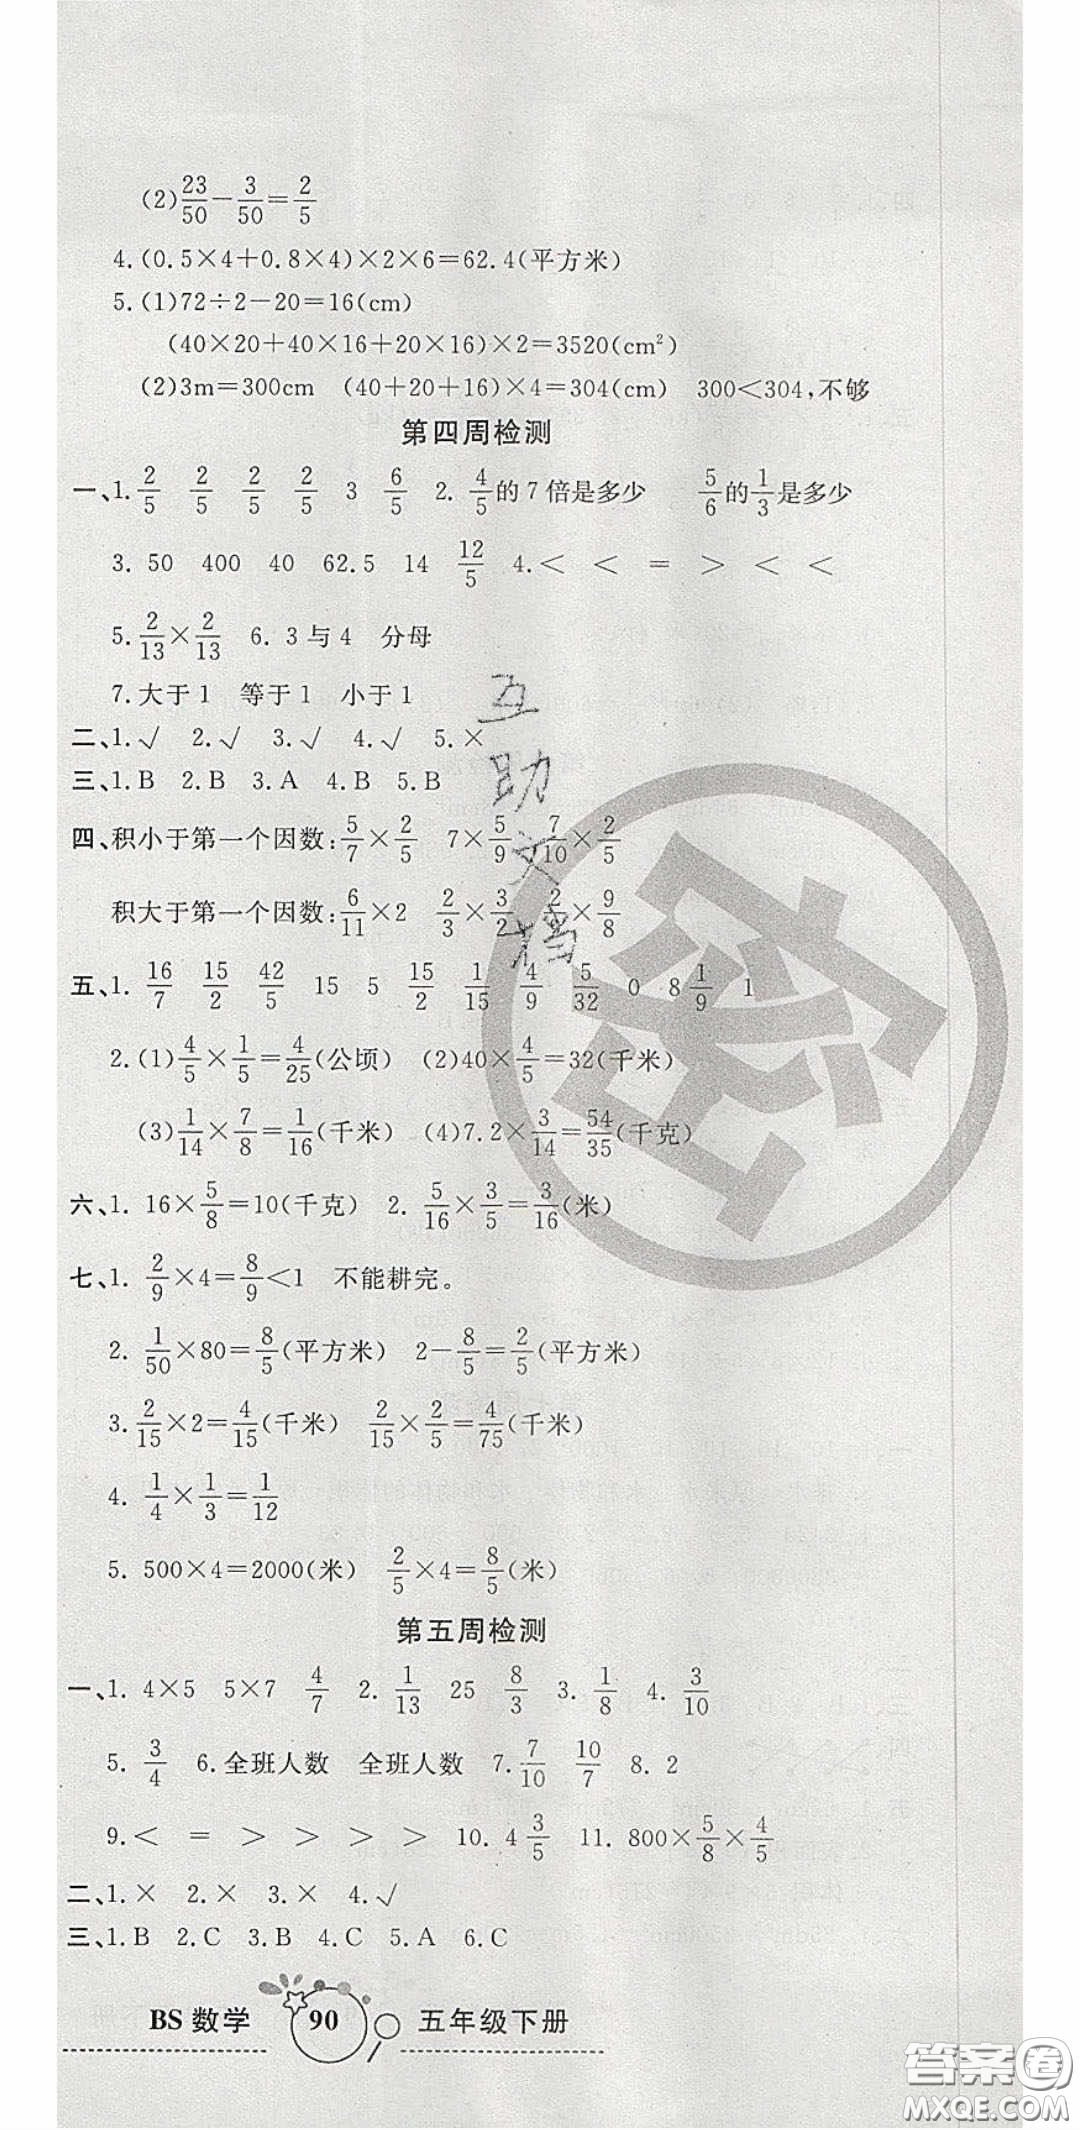 (2)23/50－3/50＝2/5
4.(0.5×4＋0.8×4)×2×6＝62.4(平方米)
5.(1)72÷2－20＝16(cm)
(40×20＋40×16＋20×16)×2＝3520(cm²)
(2)3m＝300cm (40＋20＋16)×4＝304(cm) 300＜304,不够
第四周检测
一、1. 2/5 2/5 2/5 2/5 3 6/5 2. 4/5的7倍是多少 5/6的1/3是多少
3. 50 400 40 62.5 14 12/5 4.＜ ＜ ＝ ＞ ＜ ＜
5. 2/13×2/13 6. 3与4 分母
7.大于1 等于1 小于1
二、1.√ 2.√ 3.√ 4.√ 5.×
三、1.B 2.B 3.A 4.B 5.B
四、积小于第一个因数:5/7×2/5 7×5/9 7/10×2/5
积大于第一个因数:6/11×2 2/3×3/2 2/9×9/8
五、1. 16/7 15/2 42/5 15 5 15/2 1/15 4/9 5/32 0 8 1/9 1
2.(1)4/5×1/5＝4/25(公顷) (2)40×4/5＝32(千米)
(3)1/14×7/8＝1/16(千米) (4)7.2×3/14＝54/35(千克)
六、1. 16×5/8＝10(千克) 2. 5/16×3/5＝3/16(米)
七、1. 2/9×4＝8/9＜1 不能耕完。
2. 1/50×80＝8/5(平方米) 2－8/5＝2/5(平方米)
3. 2/15×2＝4/15(千米) 2/15×2/5＝4/75(千米)
4. 1/4×1/3＝1/12
5. 500×4＝2000(米) 2/5×4＝8/5(米)
第五周检测
一、1. 4×5 5×7 4/7 2. 1/13 25 8/3 3. 1/8 4. 3/10
5. 3/4 6.全班人数 全班人数 7. 7/10 10/7 8. 2
9.＜ ＝ ＞ ＞ ＞ ＞ 10. 4 3/5 11. 800×5/8×4/5
二、1.× 2.× 3.× 4.√
三、1.B 2.C 3.B 4.C 5.A 6.C
BS 数学 90 五年级下册
互助文档
答案卷
MXQE.COM